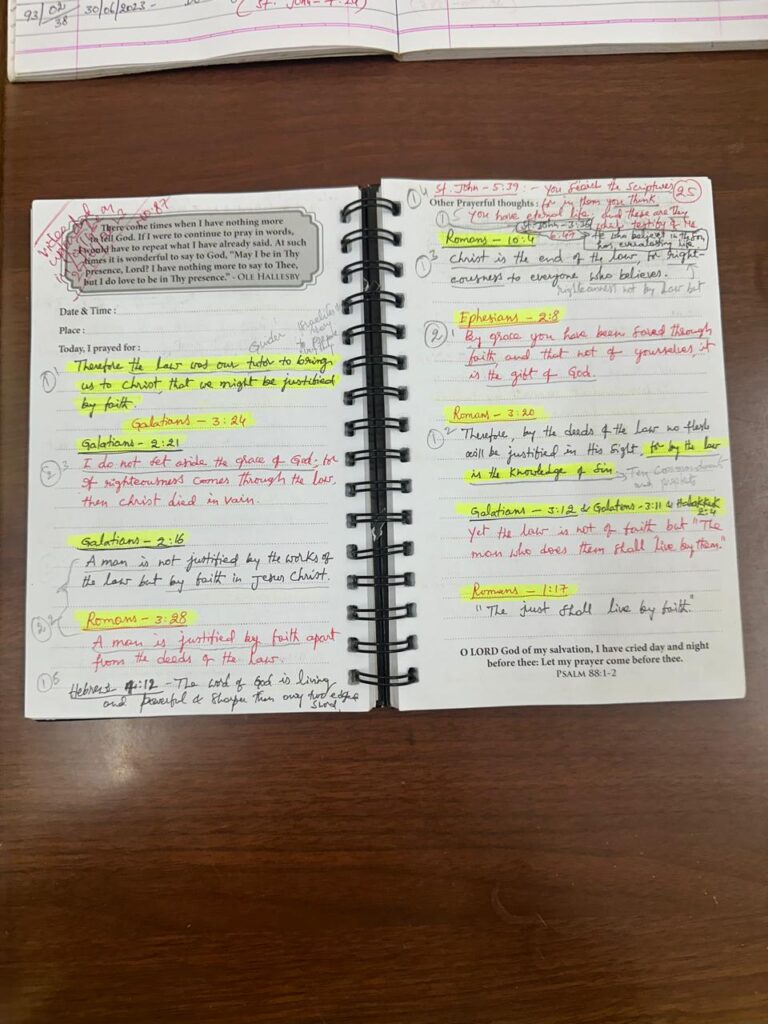 93/02/38 30/06/2023-
(St. John-
There come times when I have nothing more
to tell God. If I were to continue to pray in words,
I would have to repeat what I have already said. At such
times it is wonderful to say to God, "May I be in Thy
presence, Lord? I have nothing more to say to Thee,
but I do love to be in Thy presence." - OLE HALLESBY
Date & Time :
Place :
Today, I prayed for :
Therefore the law was our tutor to bring
us to Christ, that we might be justified
by faith.
Galatians - 3:24
Galatians - 2:21
I do not set aside the grace of God; for
if righteousness comes through the law,
then Christ died in vain.
Galatians - 2:16
A man is not justified by the works of
the law but by faith in Jesus Christ.
Romans - 3:28
A man is justified by faith apart
from the deeds of the law.
Hebrews 4:12 - The word of God is living
and powerful & sharper than any two edged
sword.
St. John - 5:39 : - You search the Scriptures 25
Other Prayerful thoughts : for in them you think
you have eternal life, and these are they
which testify of Me
Romans - 10:4 6:47 He who believes in the Son
has everlasting life
Christ is the end of the law, for right-
eousness to everyone who believes.
righteousness not by law but
Ephesians - 2:8
By grace you have been saved through
faith and that not of yourselves, it
is the gift of God.
Romans - 3:20
Therefore, by the deeds of the law no flesh
will be justified in His Sight, for by the law
is the Knowledge of Sin. Ten Commandments
and prophets
Galatians - 3:12 & Galatians - 3:11 & Habakkuk 2:4
Yet the law is not of faith but "The
man who does them shall live by them."
Romans - 1:17
"The just shall live by faith."
O LORD God of my salvation, I have cried day and night
before thee: Let my prayer come before thee.
PSALM 88:1-2